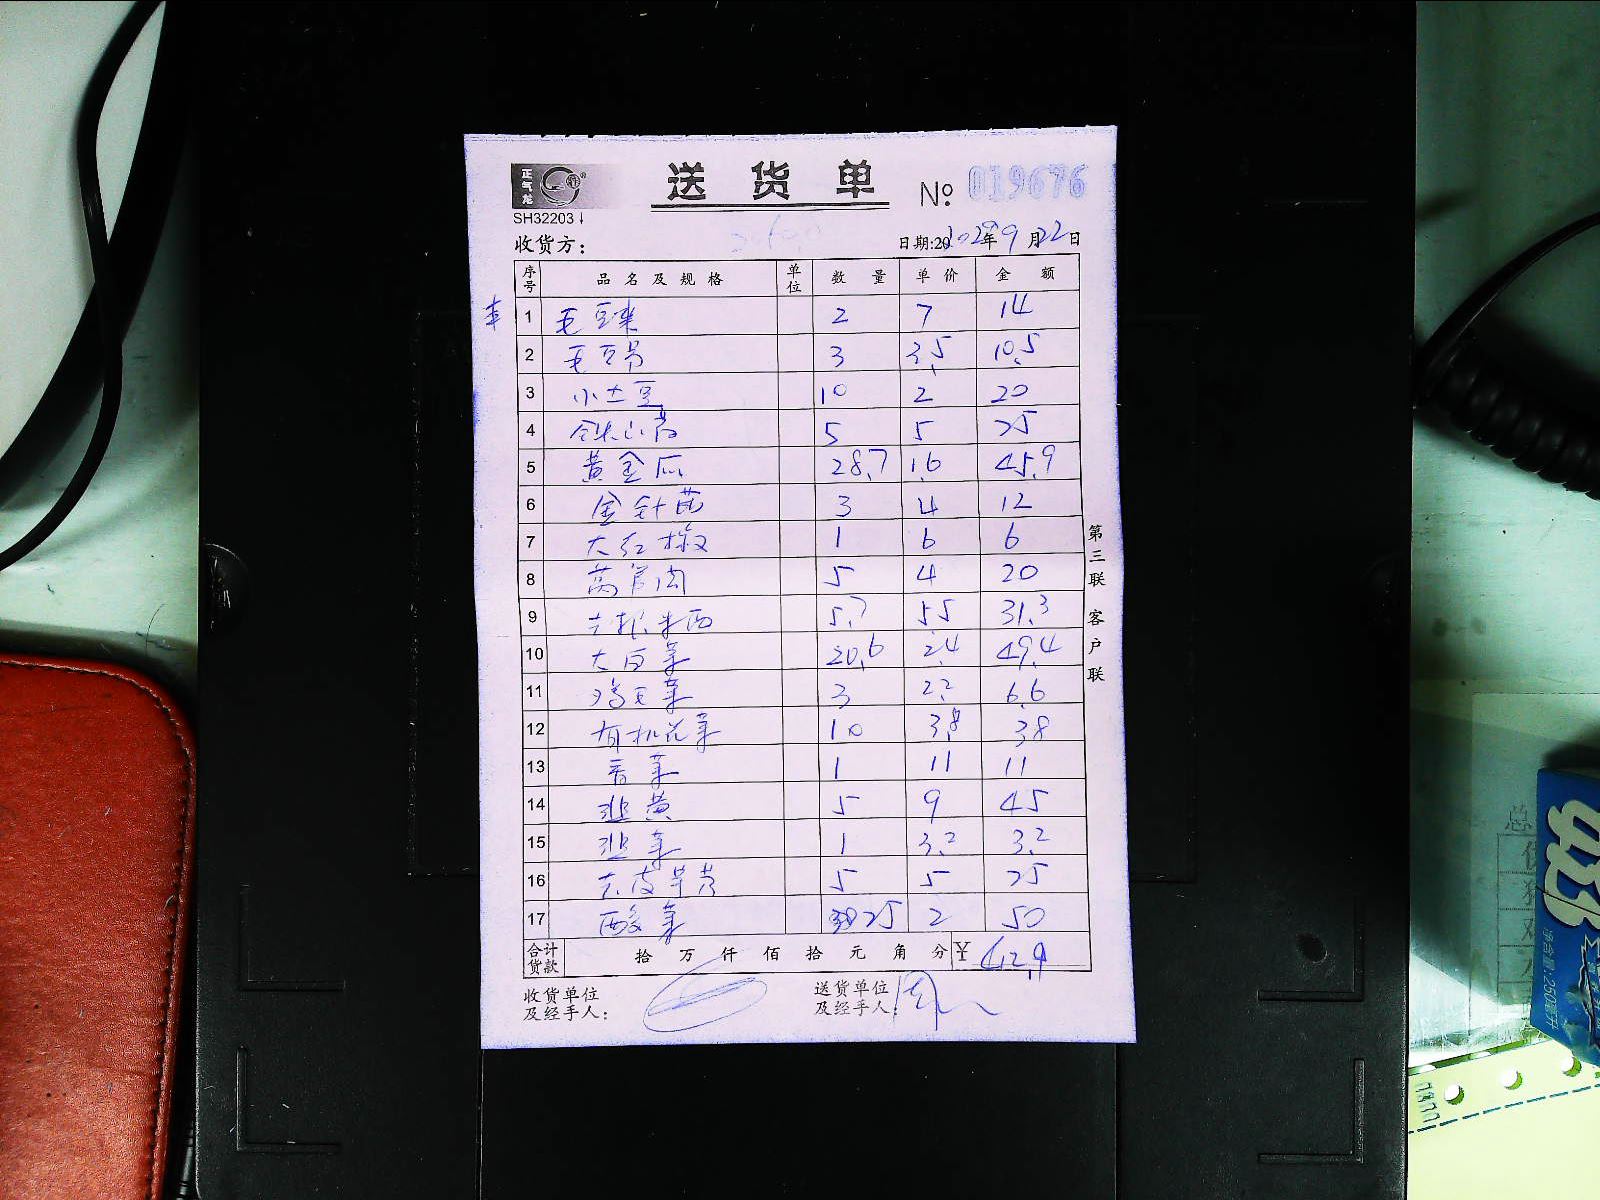 正气龙
送货单 № 019676
SH32203
收货方： 日期:20 年9月22日
序号 品名及规格 单位 数量 单价 金额
1 毛豆米 2 7 14
2 毛豆节 3 3.5 10.5
3 小土豆 10 2 20
4 铁山药 5 5 25
5 黄金瓜 28.7 1.6 45.9
6 金针菇 3 4 12
7 大红椒 1 6 6
8 莴笋肉 5 4 20
9 5.7 5.5 31.3
10 大白菜 20.6 2.4 49.4
11 鸡毛菜 3 2.2 6.6
12 有机花菜 10 3.8 38
13 香菜 1 11 11
14 韭黄 5 9 45
15 韭菜 1 3.2 3.2
16 去皮芋艿 5 5 25
17 酸菜 25 2 50
合计货款 拾万仟佰拾元角分 ¥
收货单位及经手人： 送货单位及经手人：
第三联 客户联
净含量:250毫升